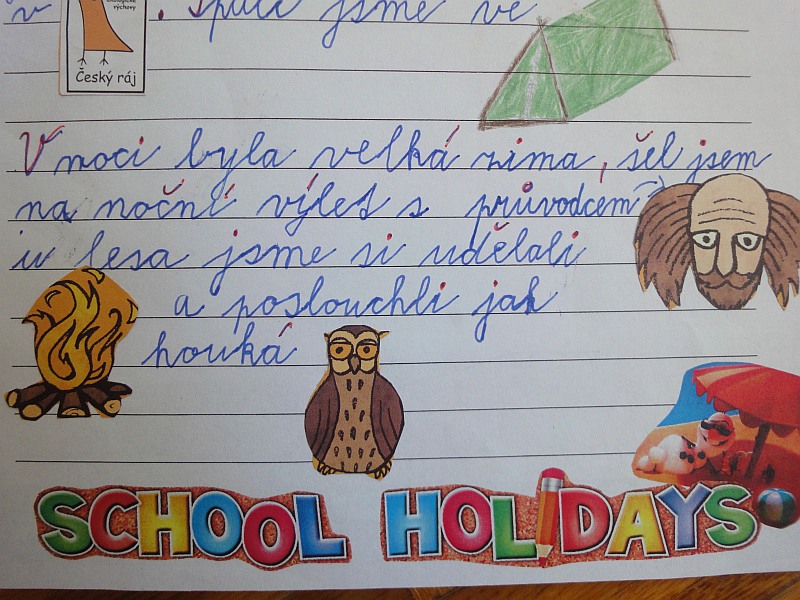 v . Spali jsme ve
výchovy
Český ráj
V noci byla velká zima, šel jsem
na noční výlet s průvodcem
u lesa jsme si udělali
a poslouchli jak
houká
SCHOOL HOLIDAYS